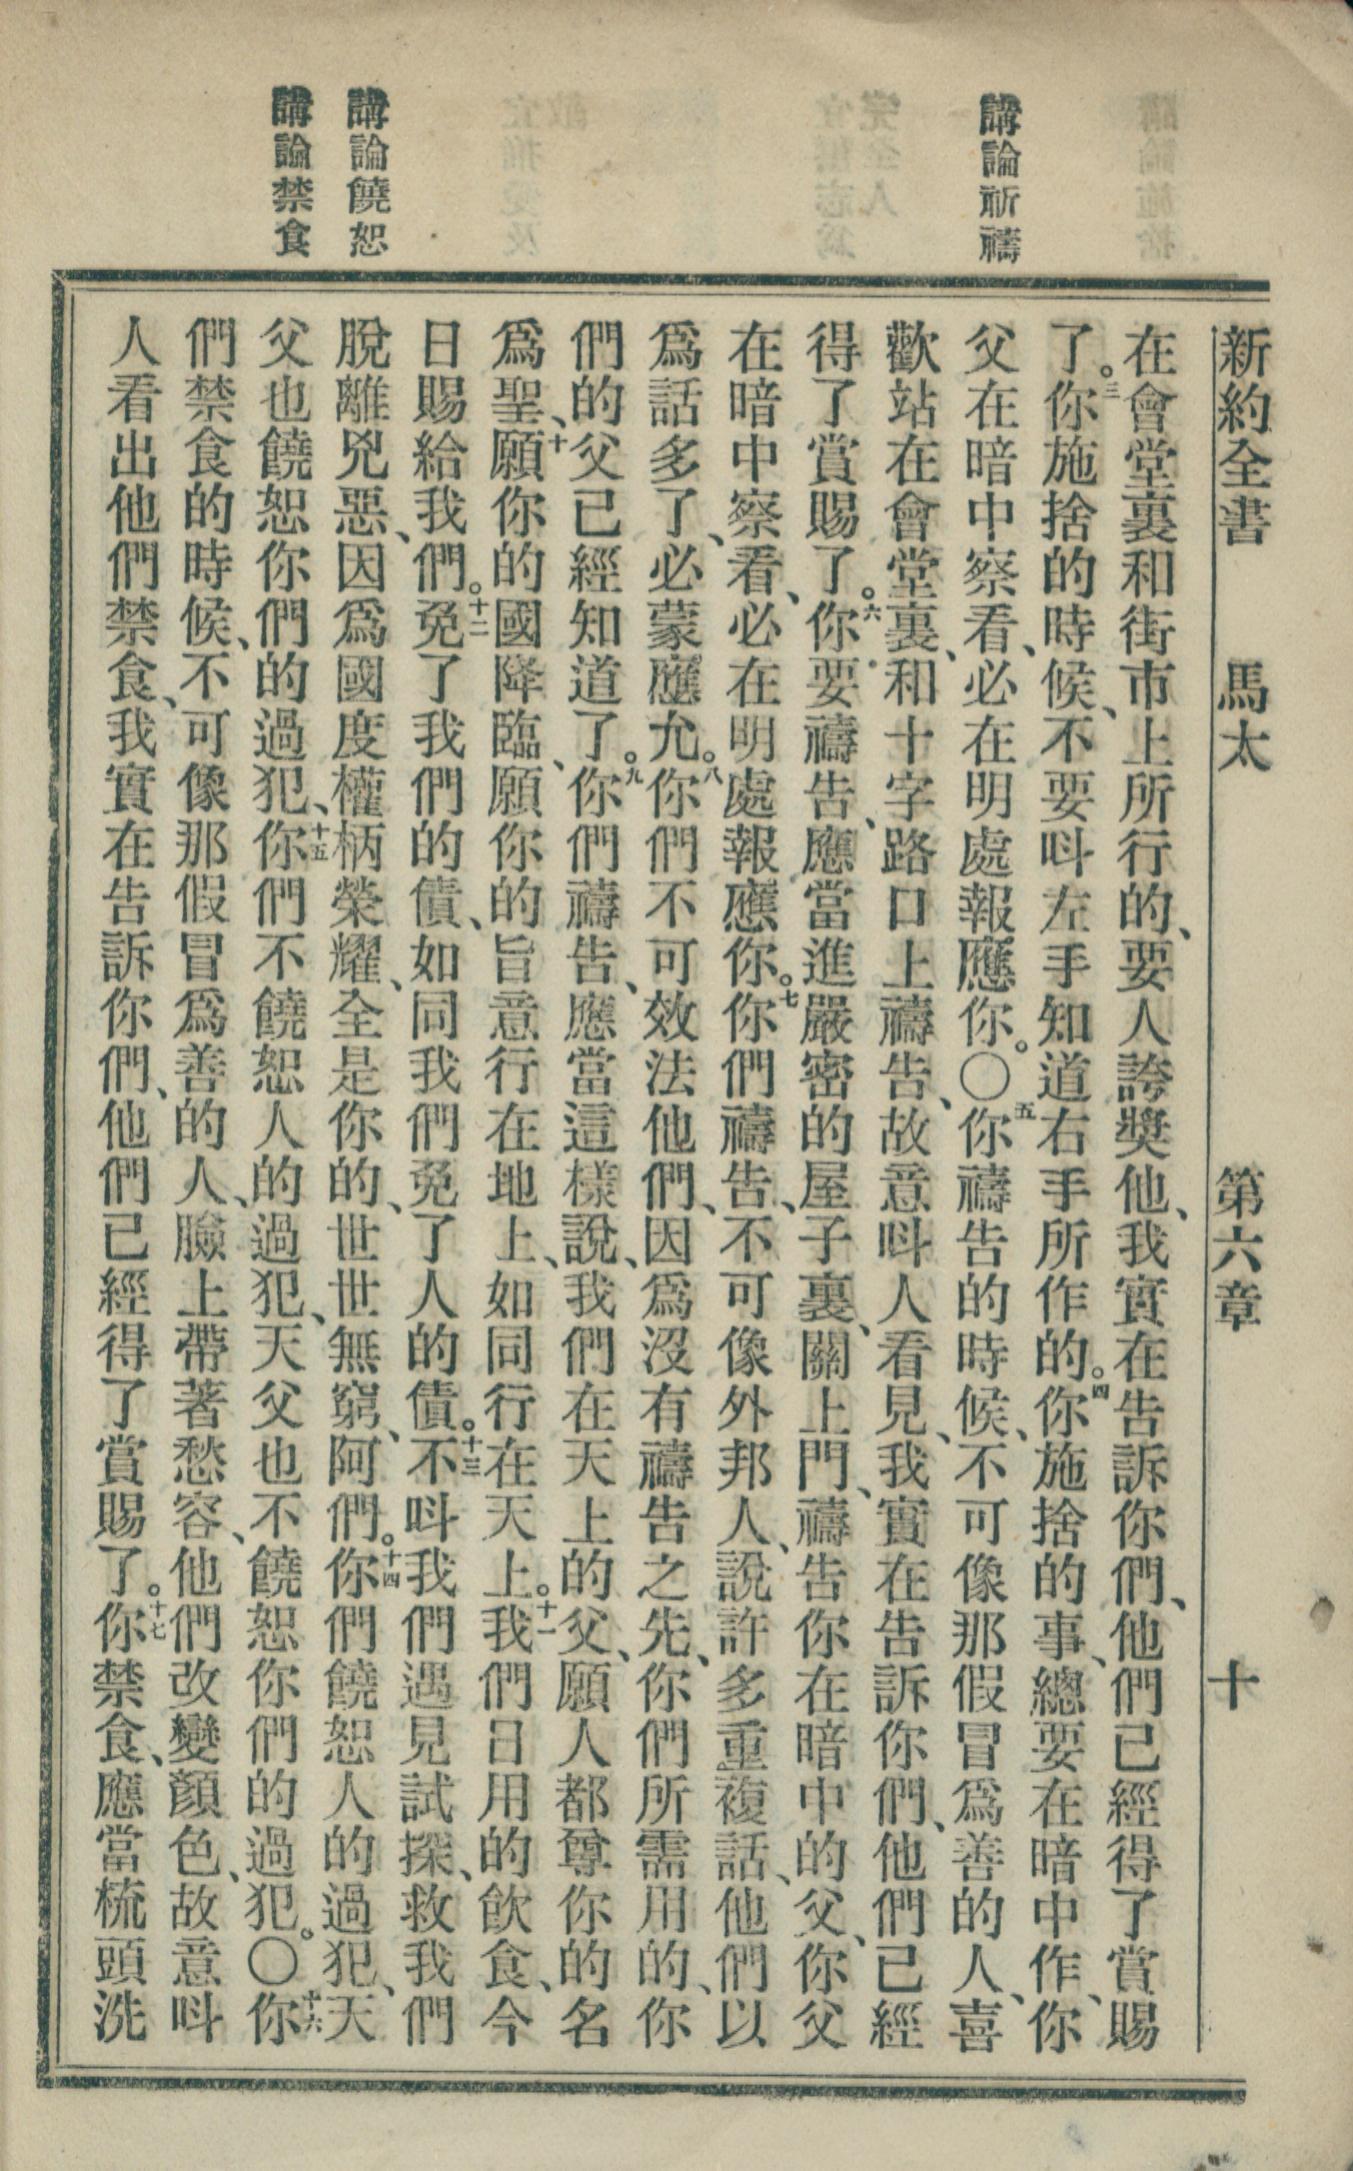 新約全書 馬太 第六章 十
講論祈禱
講論饒恕
講論禁食
在會堂裏和街市上所行的、要人誇獎他、我實在告訴你們、他們已經得了賞賜
了。三你施捨的時候、不要呌左手知道右手所作的。四你施捨的事、總要在暗中作、你
父在暗中察看、必在明處報應你。〇五你禱告的時候、不可像那假冒爲善的人、喜
歡站在會堂裏、和十字路口上禱告、故意呌人看見、我實在告訴你們、他們已經
得了賞賜了。六你要禱告、應當進嚴密的屋子裏、關上門、禱告你在暗中的父、你父
在暗中察看、必在明處報應你。七你們禱告、不可像外邦人、說許多重複話、他們以
爲話多了、必蒙應允。八你們不可效法他們、因爲沒有禱告之先、你們所需用的、你
們的父已經知道了。九你們禱告、應當這樣說、我們在天上的父、願人都尊你的名
爲聖、十願你的國降臨、願你的旨意行在地上、如同行在天上。十一我們日用的飲食、今
日賜給我們。十二免了我們的債、如同我們免了人的債。十三不呌我們遇見試探、救我們
脫離兇惡、因爲國度權柄榮耀、全是你的、世世無窮、阿們。十四你們饒恕人的過犯、天
父也饒恕你們的過犯、十五你們不饒恕人的過犯、天父也不饒恕你們的過犯。〇十六你
們禁食的時候、不可像那假冒爲善的人、臉上帶著愁容、他們改變顏色、故意呌
人看出他們禁食、我實在告訴你們、他們已經得了賞賜了。十七你禁食、應當梳頭洗